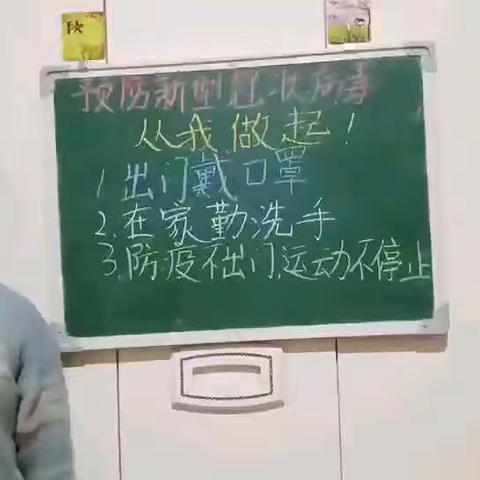 秋
预防新型冠状病毒
从我做起！
1 出门戴口罩
2.在家勤洗手
3.防疫不出门,运动不停止